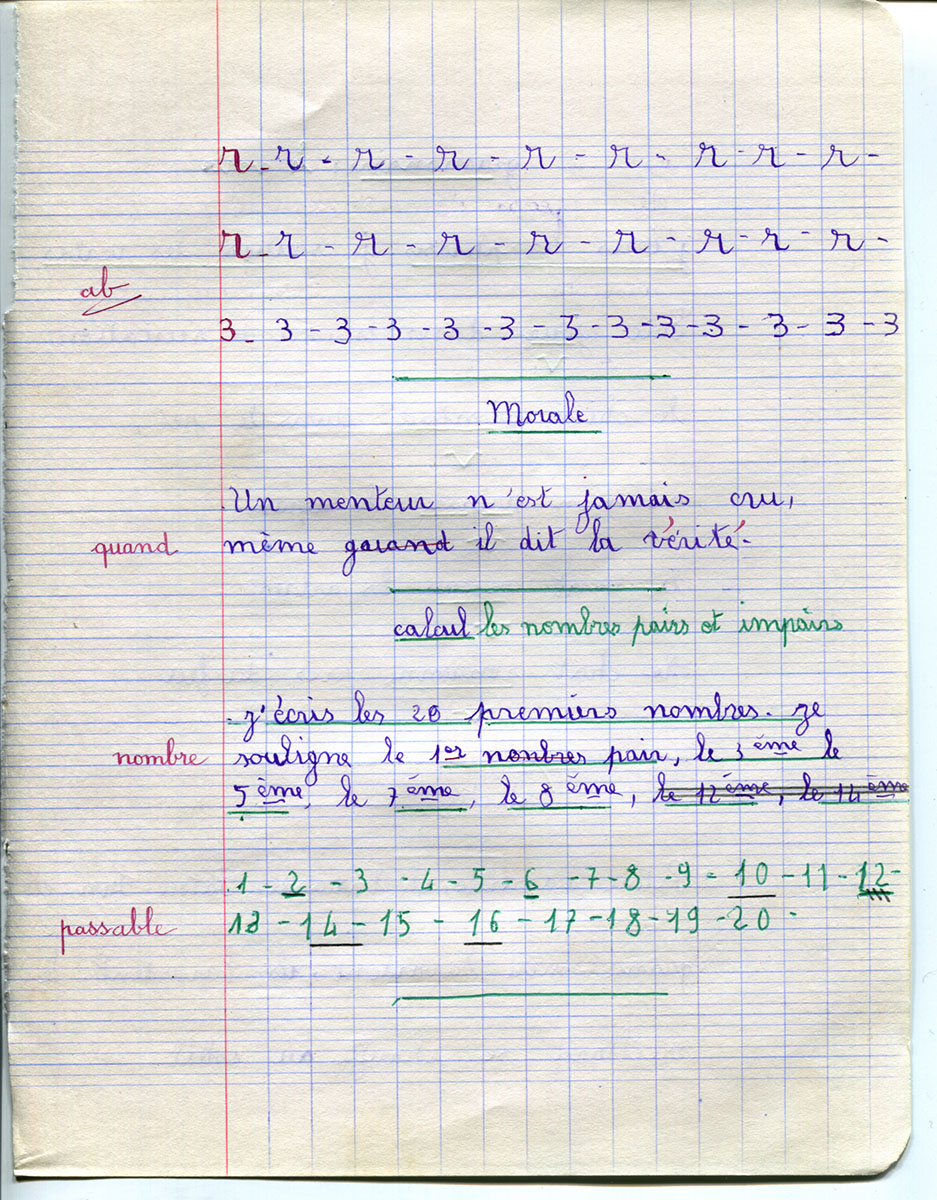 r - r - r - r - r - r - r - r - r -
r - r - r - r - r - r - r - r - r -
ab
3 - 3 - 3 - 3 - 3 - 3 - 3 - 3 - 3 - 3 - 3 - 3 - 3
Morale
Un menteur n'est jamais cru,
quand même garand il dit la vérité.
calcul les nombres pairs et impairs
j'écris les 20 premiers nombres. je
nombre souligne le 1er nombres pair, le 3ème le
5ème, le 7ème, le 8ème, le 12ème, le 14ème
1 - 2 - 3 - 4 - 5 - 6 - 7 - 8 - 9 - 10 - 11 - 12 -
passable 13 - 14 - 15 - 16 - 17 - 18 - 19 - 20 -